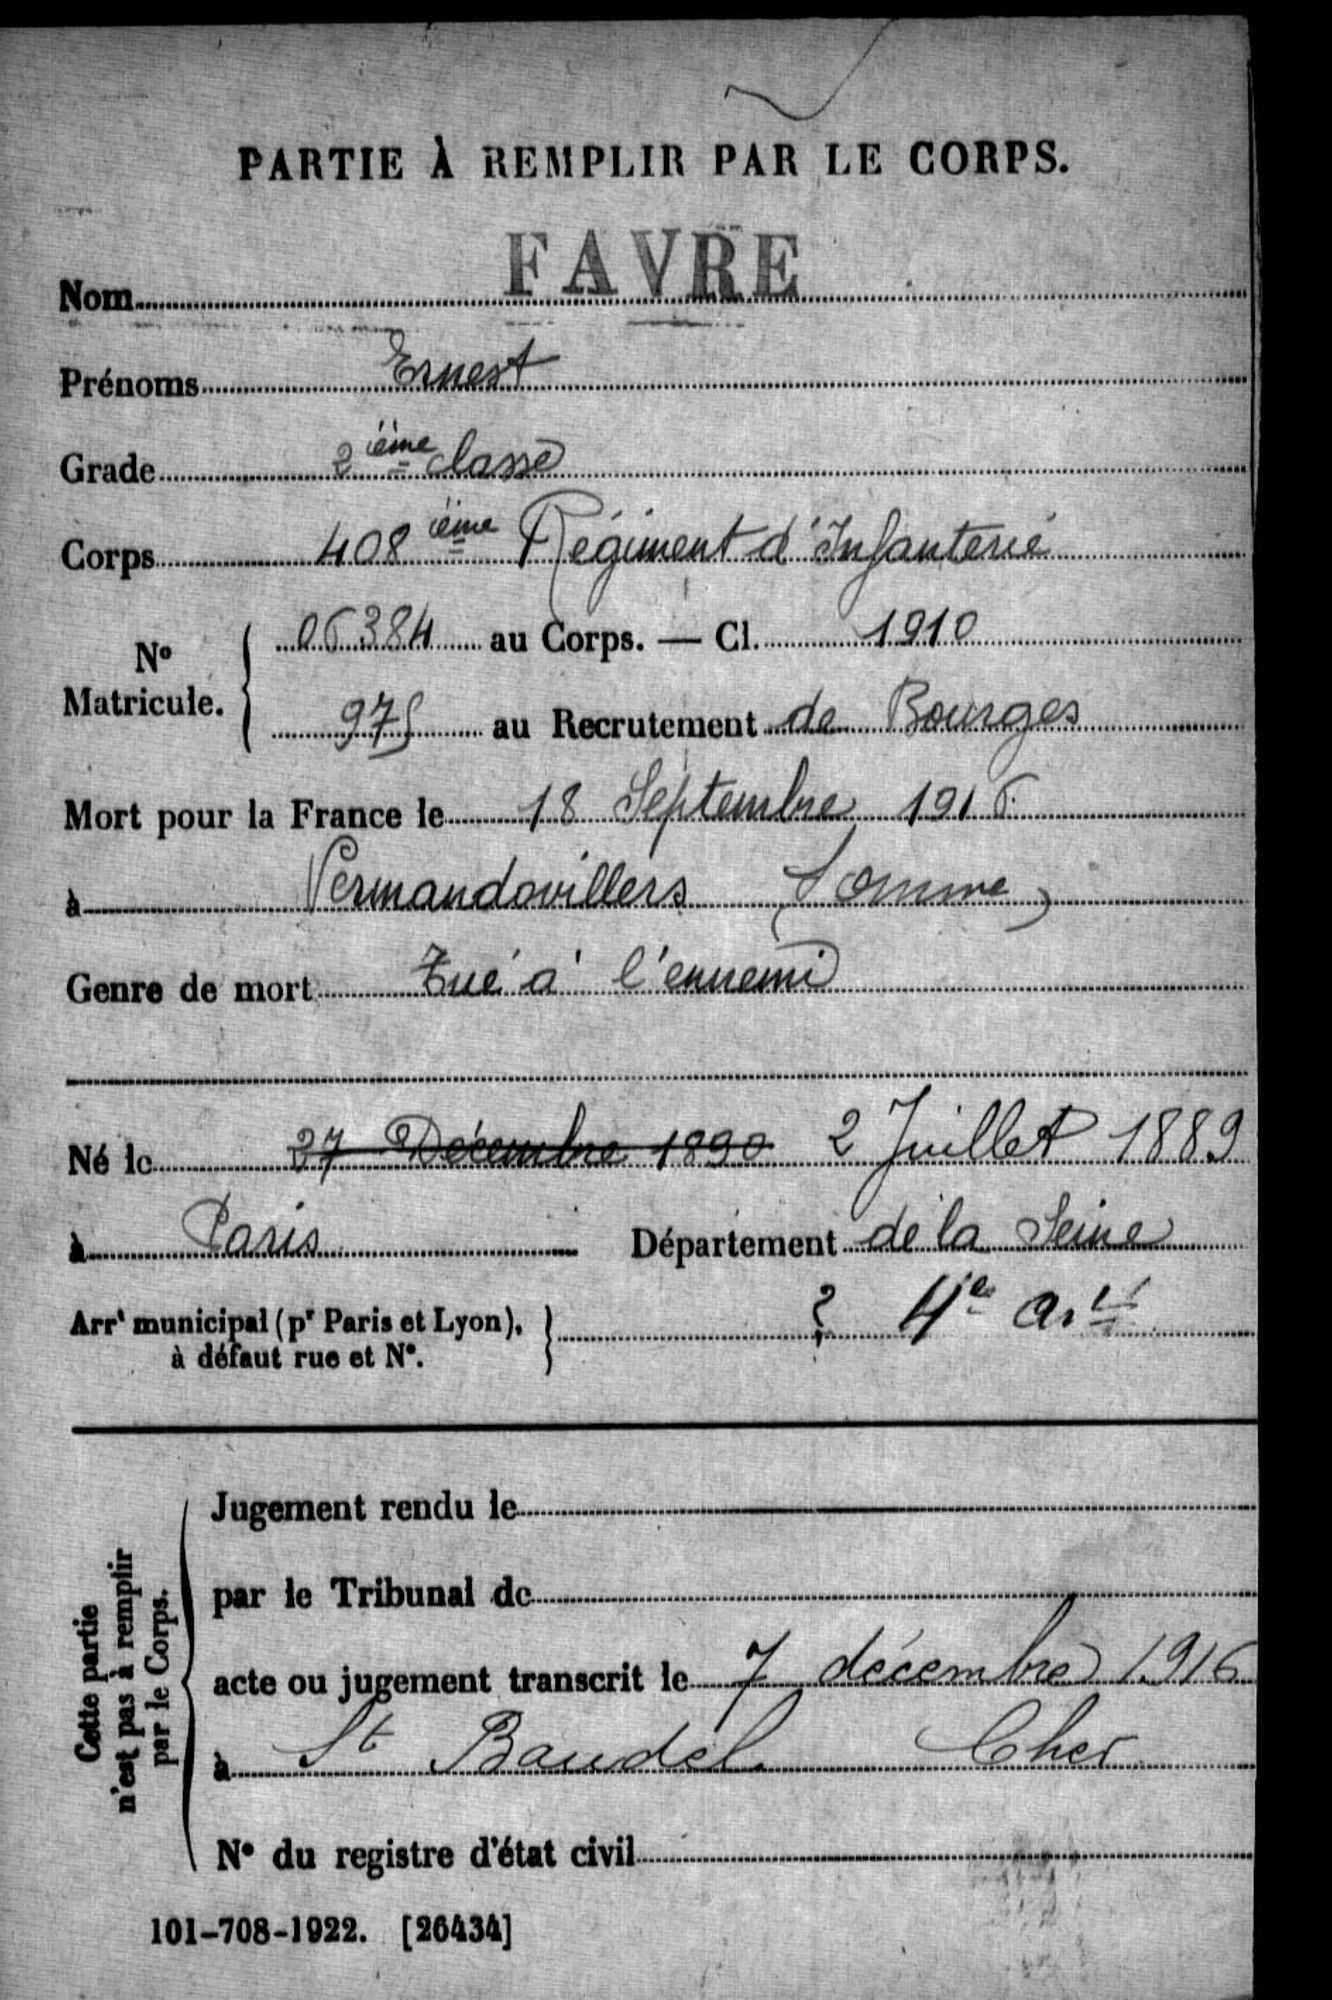 PARTIE À REMPLIR PAR LE CORPS.
Nom FAVRE
Prénoms Ernest
Grade 2ième classe
Corps 408ième Régiment d'Infanterie
N° Matricule. { 06384 au Corps. — Cl. 1910
975 au Recrutement de Bourges
Mort pour la France le 18 Septembre 1916
à Vermandovillers (Somme)
Genre de mort Tué à l'ennemi
Né le 27 Décembre 1890 2 Juillet 1889
à Paris Département de la Seine
Arrt municipal (pr Paris et Lyon), } ? 4e art
à défaut rue et N°.
Cette partie
n'est pas à remplir
par le Corps.
Jugement rendu le
par le Tribunal de
acte ou jugement transcrit le 7 décembre 1916
à St Baudel Cher
N° du registre d'état civil
101-708-1922. [26434]